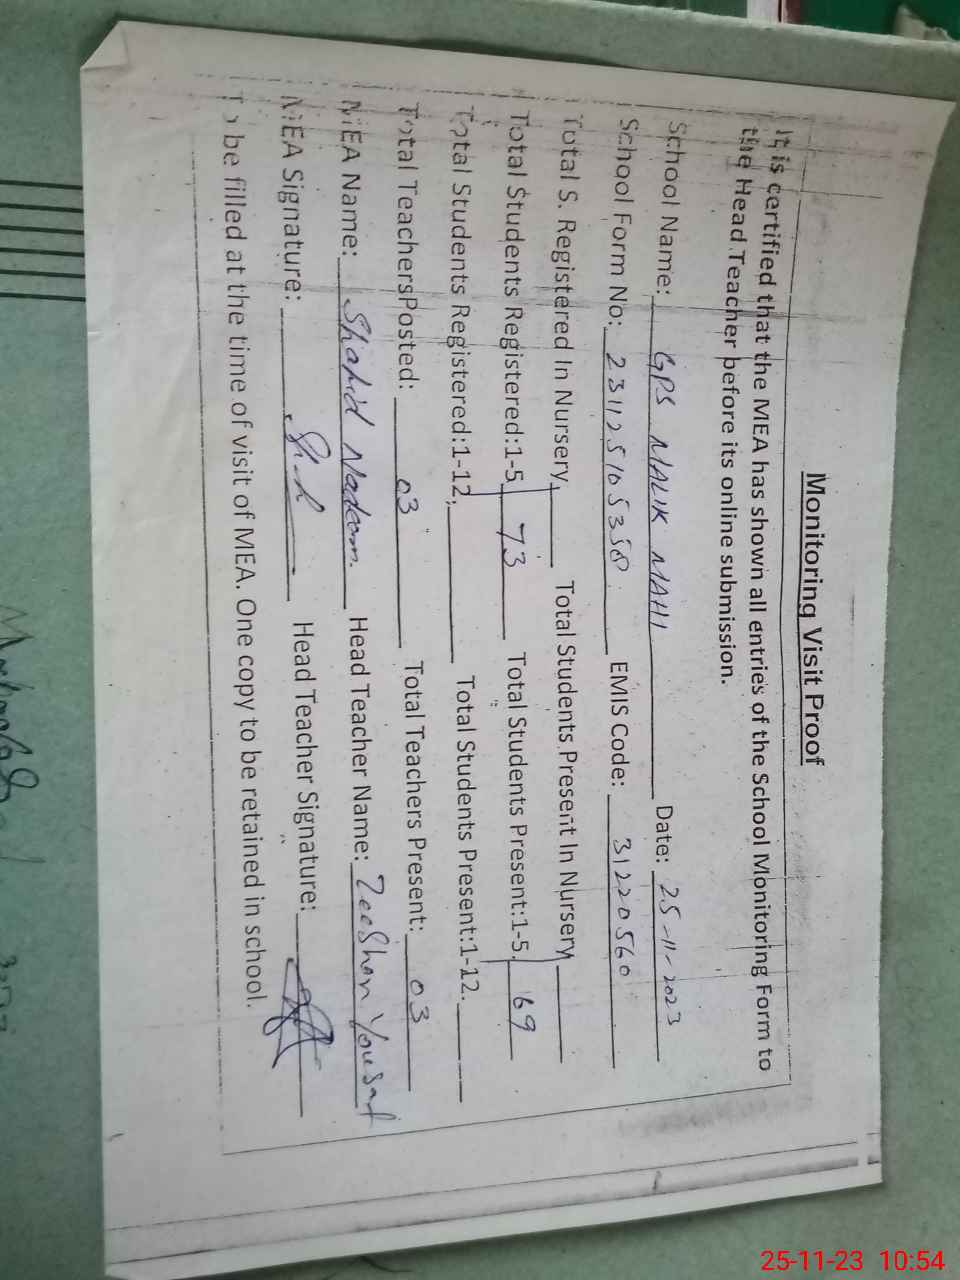 Monitoring Visit Proof
It is certified that the MEA has shown all entries of the School Monitoring Form to
the Head Teacher before its online submission.
School Name: GPS MALIK MAHI Date: 25-11-2023
School Form No: 231125105358 EMIS Code: 31220560
Total S. Registered In Nursery, Total Students Present In Nursery
Total Students Registered:1-5, 73 Total Students Present:1-5, 69
Total Students Registered:1-12, Total Students Present:1-12.
Total TeachersPosted: 03 Total Teachers Present: 03
MEA Name: Shahid Nadeem Head Teacher Name: Zeeshan Yousaf
MEA Signature: Head Teacher Signature:
To be filled at the time of visit of MEA. One copy to be retained in school.
25-11-23 10:54